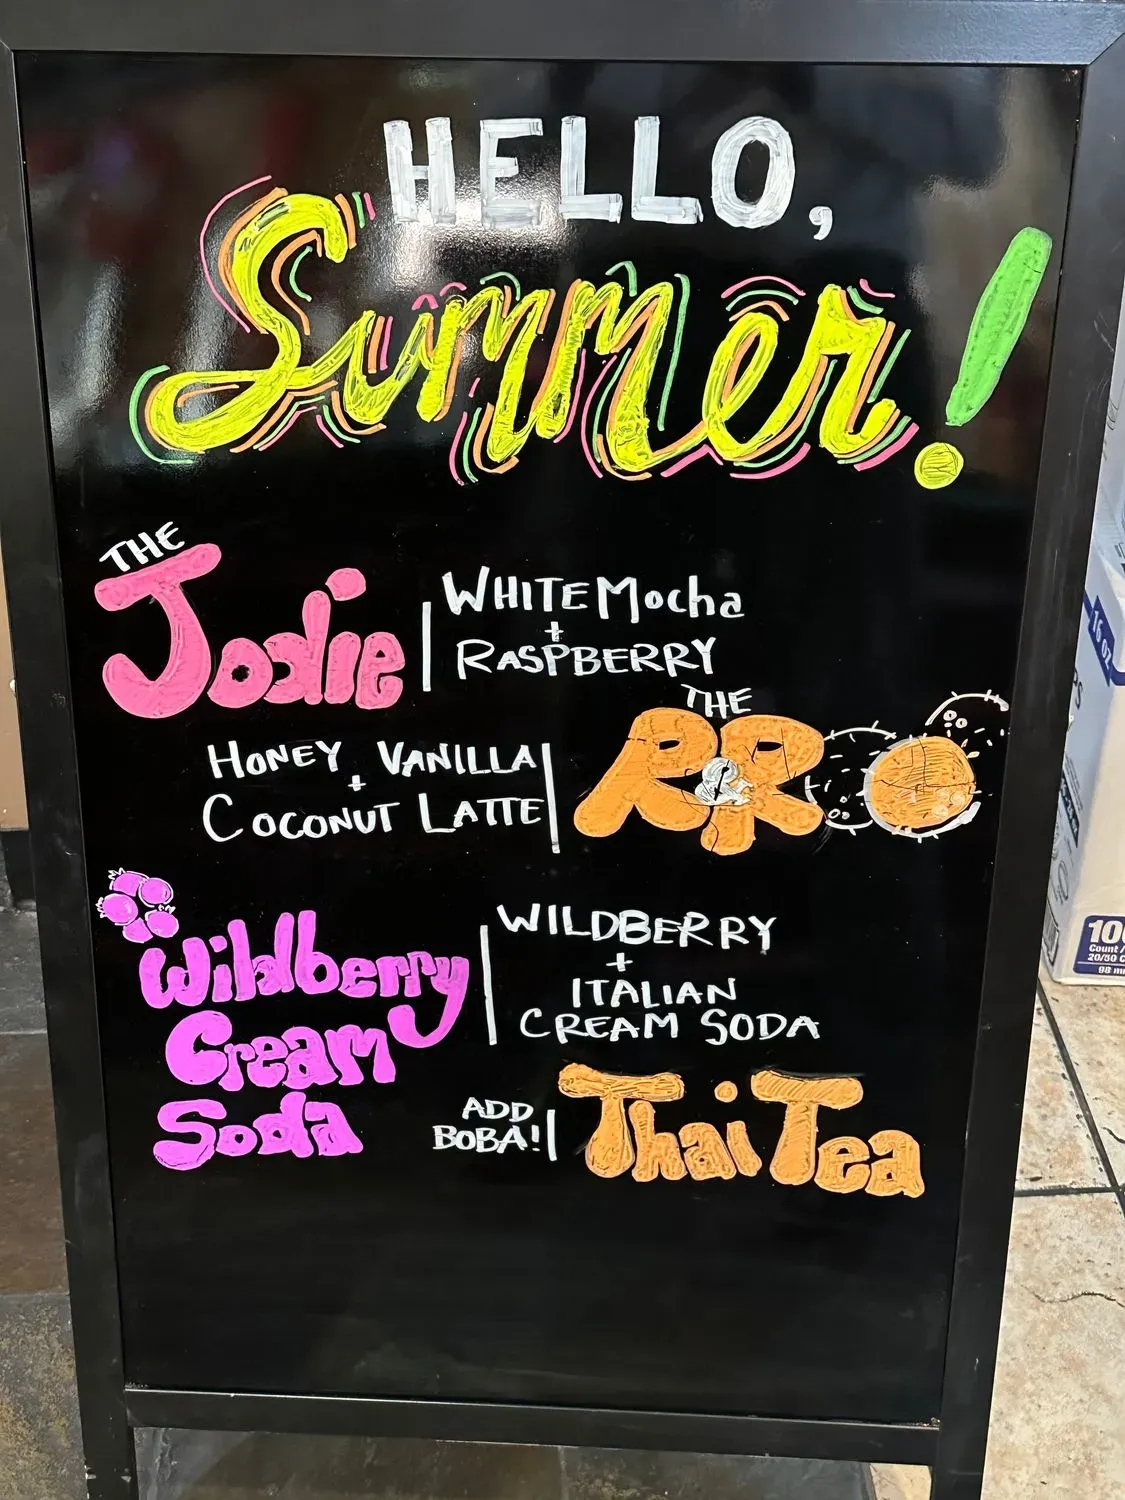 HELLO,
Summer!
THE
Jodie
WHITE Mocha
+
RASPBERRY
THE
R&R
HONEY VANILLA
+
COCONUT LATTE
Wildberry
Cream
Soda
WILDBERRY
+
ITALIAN
CREAM SODA
ADD
BOBA!
Thai Tea
16 OZ
Count /
20/50 C